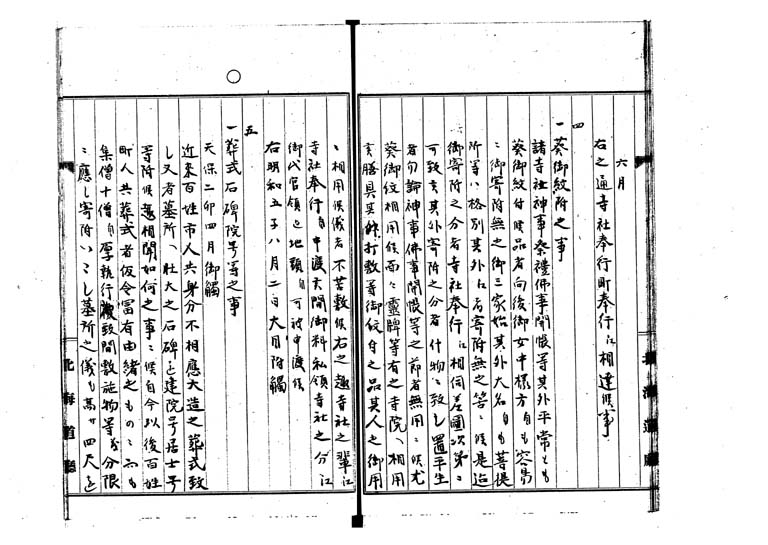 六月
右之通寺社奉行町奉行江相達候事
四
一葵御紋附之事
諸寺社神事祭禮佛事開帳等其外平常とも
葵御紋付候品者向後御女中様方自も容易
ニ御寄附無之御三家始其外大名自も菩提
所等ハ格別其外江者寄附無之筈ニ候是迄
御寄附之分者寺社奉行江相伺差圖次第ニ
可致き其外寄附之分者什物ニ致し置平生
者勿論神事佛事開帳等之節者無用ニ候尤
葵御紋相用候面々靈牌等有之寺院ハ相用
膳具其外打敷等御紋付之品其人之御用
ニ相用候儀者不苦敷候右之趣寺社之輩江
寺社奉行自申渡間御料私領寺社之分江
御代官領主地頭自可被申渡候
右明和五子八月二日大目附觸
五
一葬式石碑院号等之事
天保二卯四月御觸
近来百姓市人共身分不相應大造之葬式致
し又者墓所ハ壮大之石碑を建院号居士号
等附候趣相聞如何之事ニ候自今以後百姓
町人共葬式者仮令富有由緒之ものニ而も
集僧十僧自厚執行致間敷施物等も分限
ニ應し寄附いたし墓所之儀も高サ四尺を
北海道廳
北海道廳